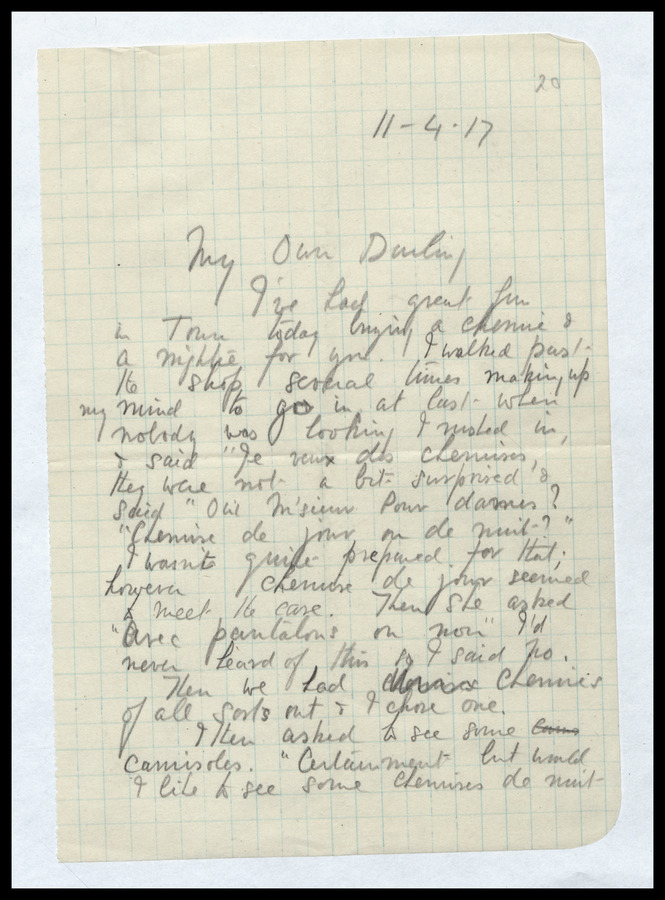 20
11-4-17
My Own Darling
I've had great fun
in Town today buying a chemise &
a nightie for you. I walked past
the shop several times making up
my mind to go in at last when
nobody was looking I rushed in,
& said "Je veux des chemises,
they were not a bit surprised &
said "Oui M'sieur Pour dames?
"Chemise de jour ou de nuit?"
I wasn't quite prepared for that;
however chemise de jour seemed
to meet the case. Then she asked
"Avec pantalons ou non" I'd
never heard of this so I said no.
Then we had Chemises
of all sorts out & I chose one.
I then asked to see some
camisoles. "Certainment but would
I like to see some chemises de nuit